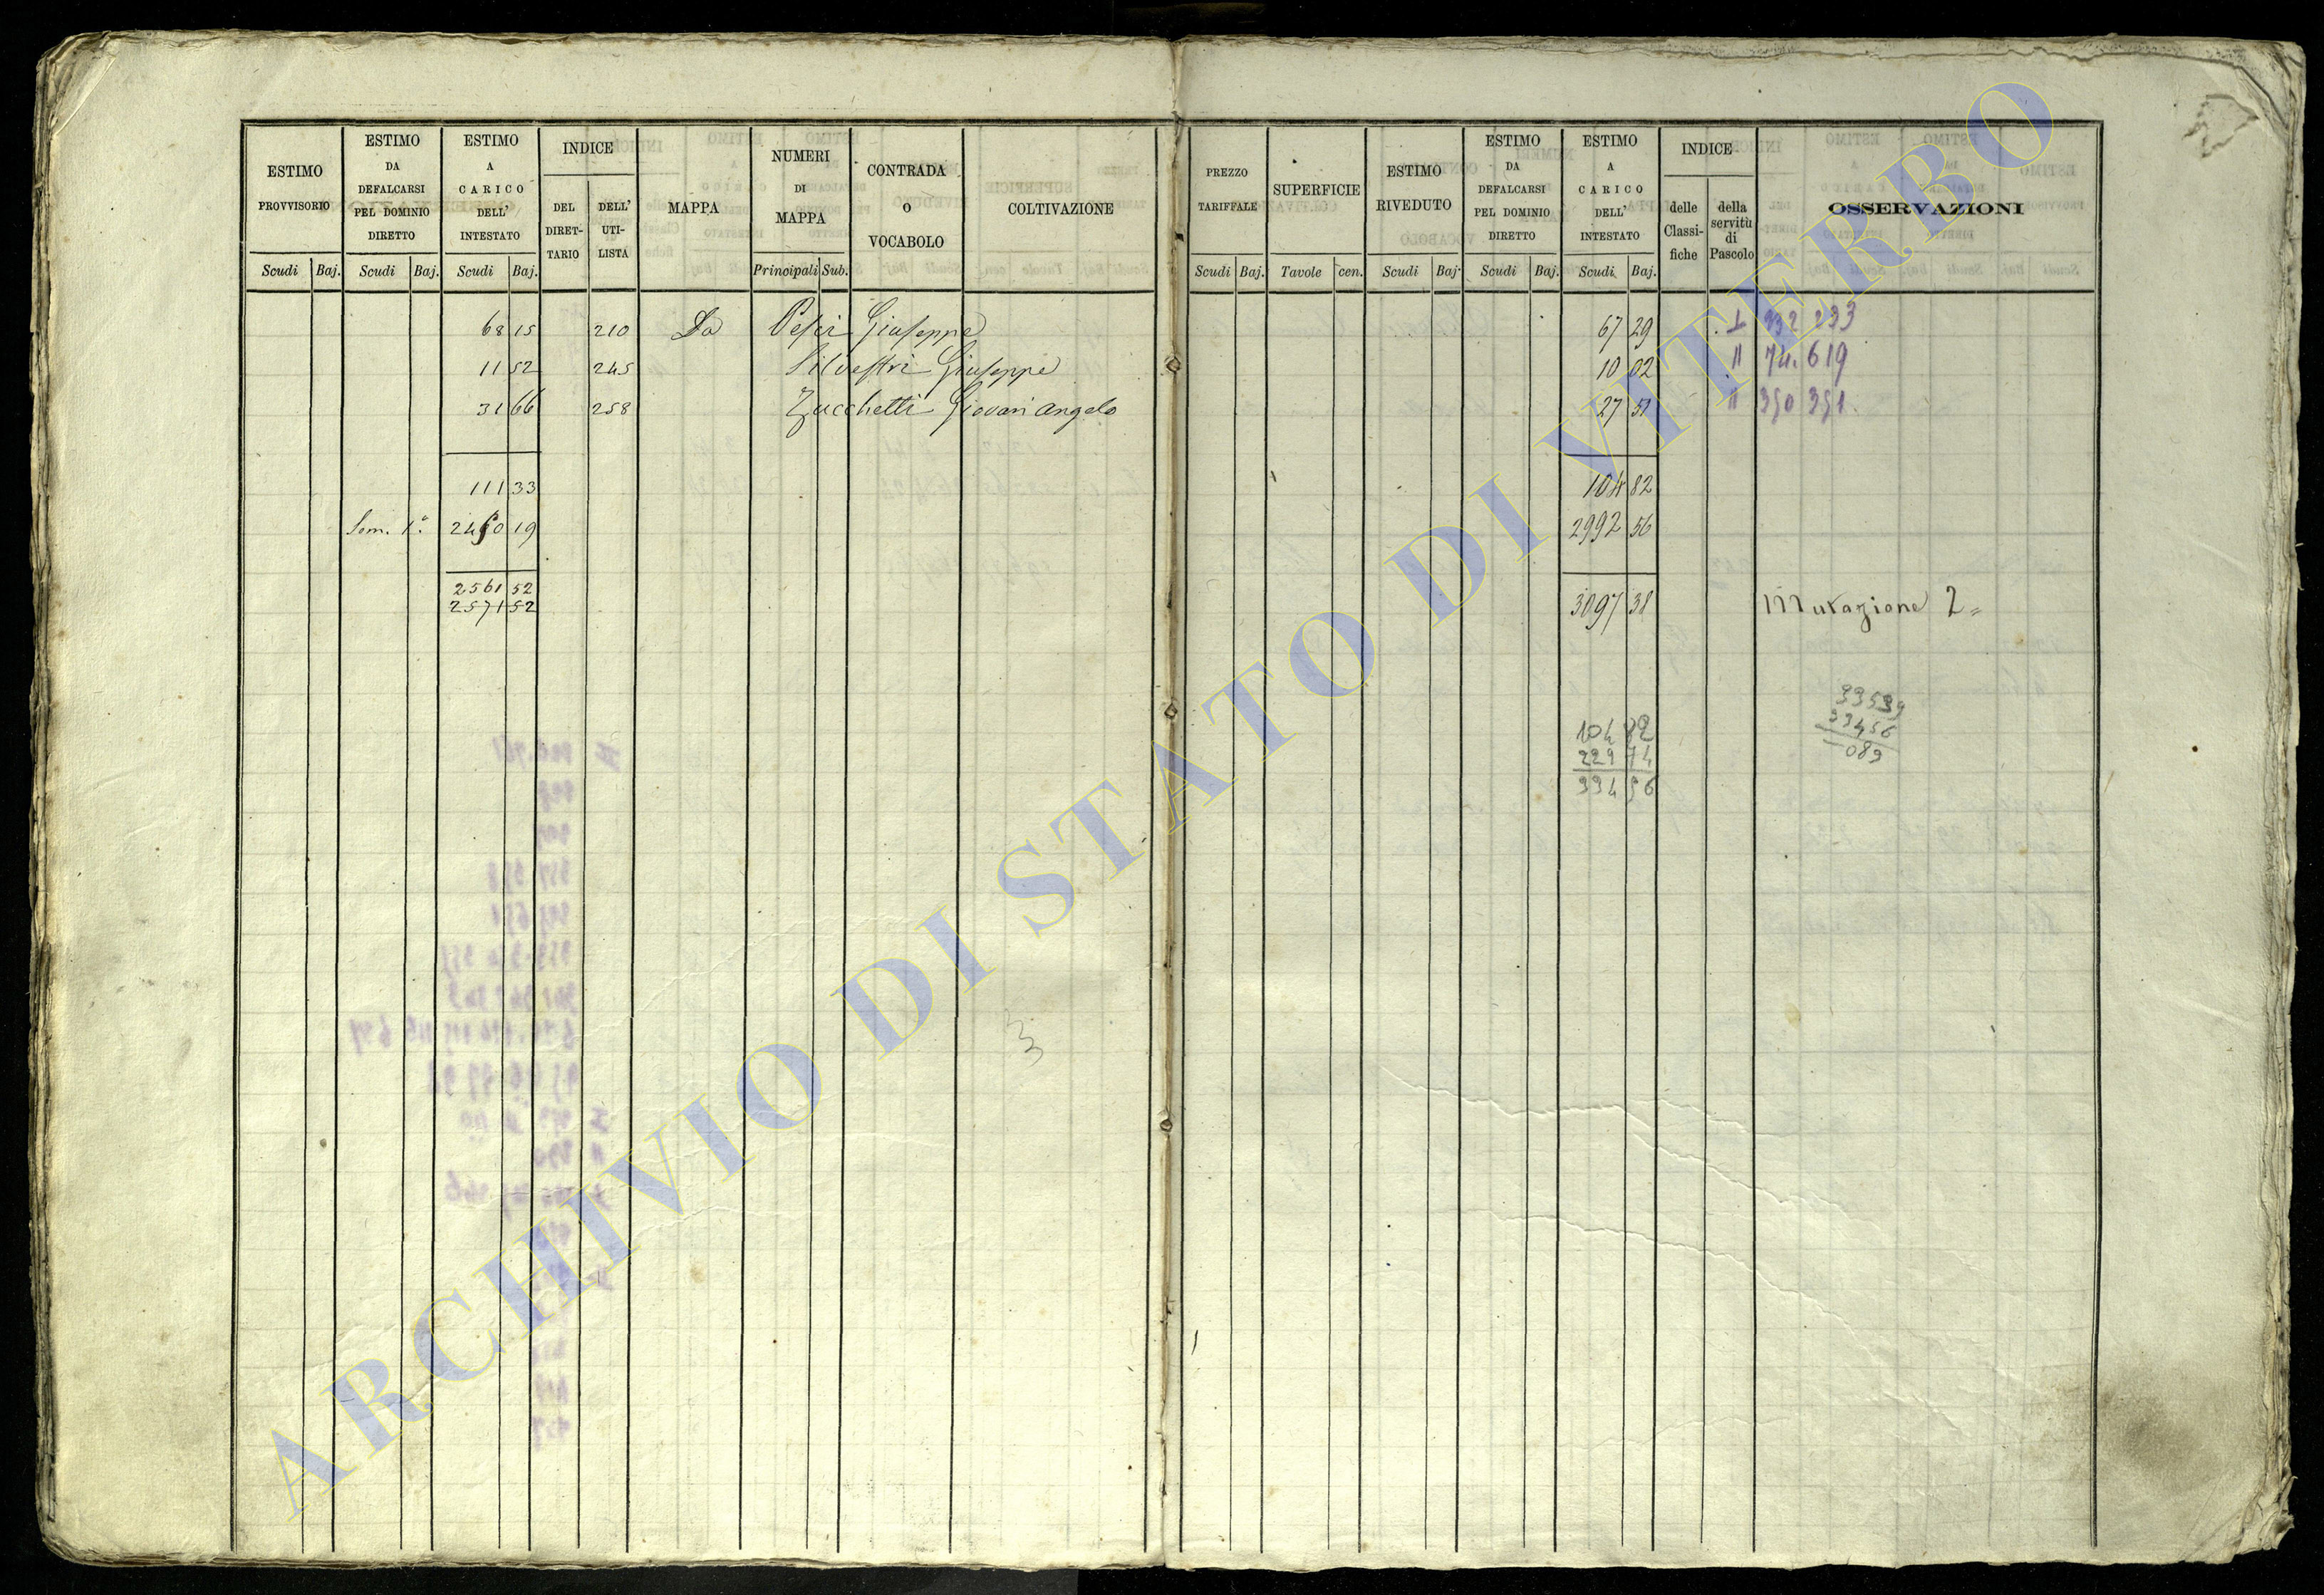 ESTIMO PROVVISORIO
ESTIMO DA DEFALCARSI PEL DOMINIO DIRETTO
ESTIMO A CARICO DELL' INTESTATO
INDICE
DEL DIRET-TARIO
DELL' UTI-LISTA
MAPPA
NUMERI DI MAPPA
CONTRADA O VOCABOLO
COLTIVAZIONE
Scudi Baj. Scudi Baj. Scudi Baj. Principali Sub.
68 15 210 Da Pesci Giuseppe
11 52 245 Silvestri Giuseppe
31 66 258 Zucchetti Giovan Angelo
111 33
Som. 1a. 2450 19
2561 52
2571 52
3
PREZZO TARIFFALE
SUPERFICIE
ESTIMO RIVEDUTO
ESTIMO DA DEFALCARSI PEL DOMINIO DIRETTO
ESTIMO A CARICO DELL' INTESTATO
INDICE
delle Classi-fiche
della servitù di Pascolo
OSSERVAZIONI
Scudi Baj. Tavole cen. Scudi Baj. Scudi Baj. Scudi Baj.
67 29 I 232 233
10 02 " 74. 619
27 51 " 350 351
104 82
2992 56
3097 38 Mutazione 2=
33539
33456
083
104 82
229 74
334 56
ARCHIVIO DI STATO DI VITERBO